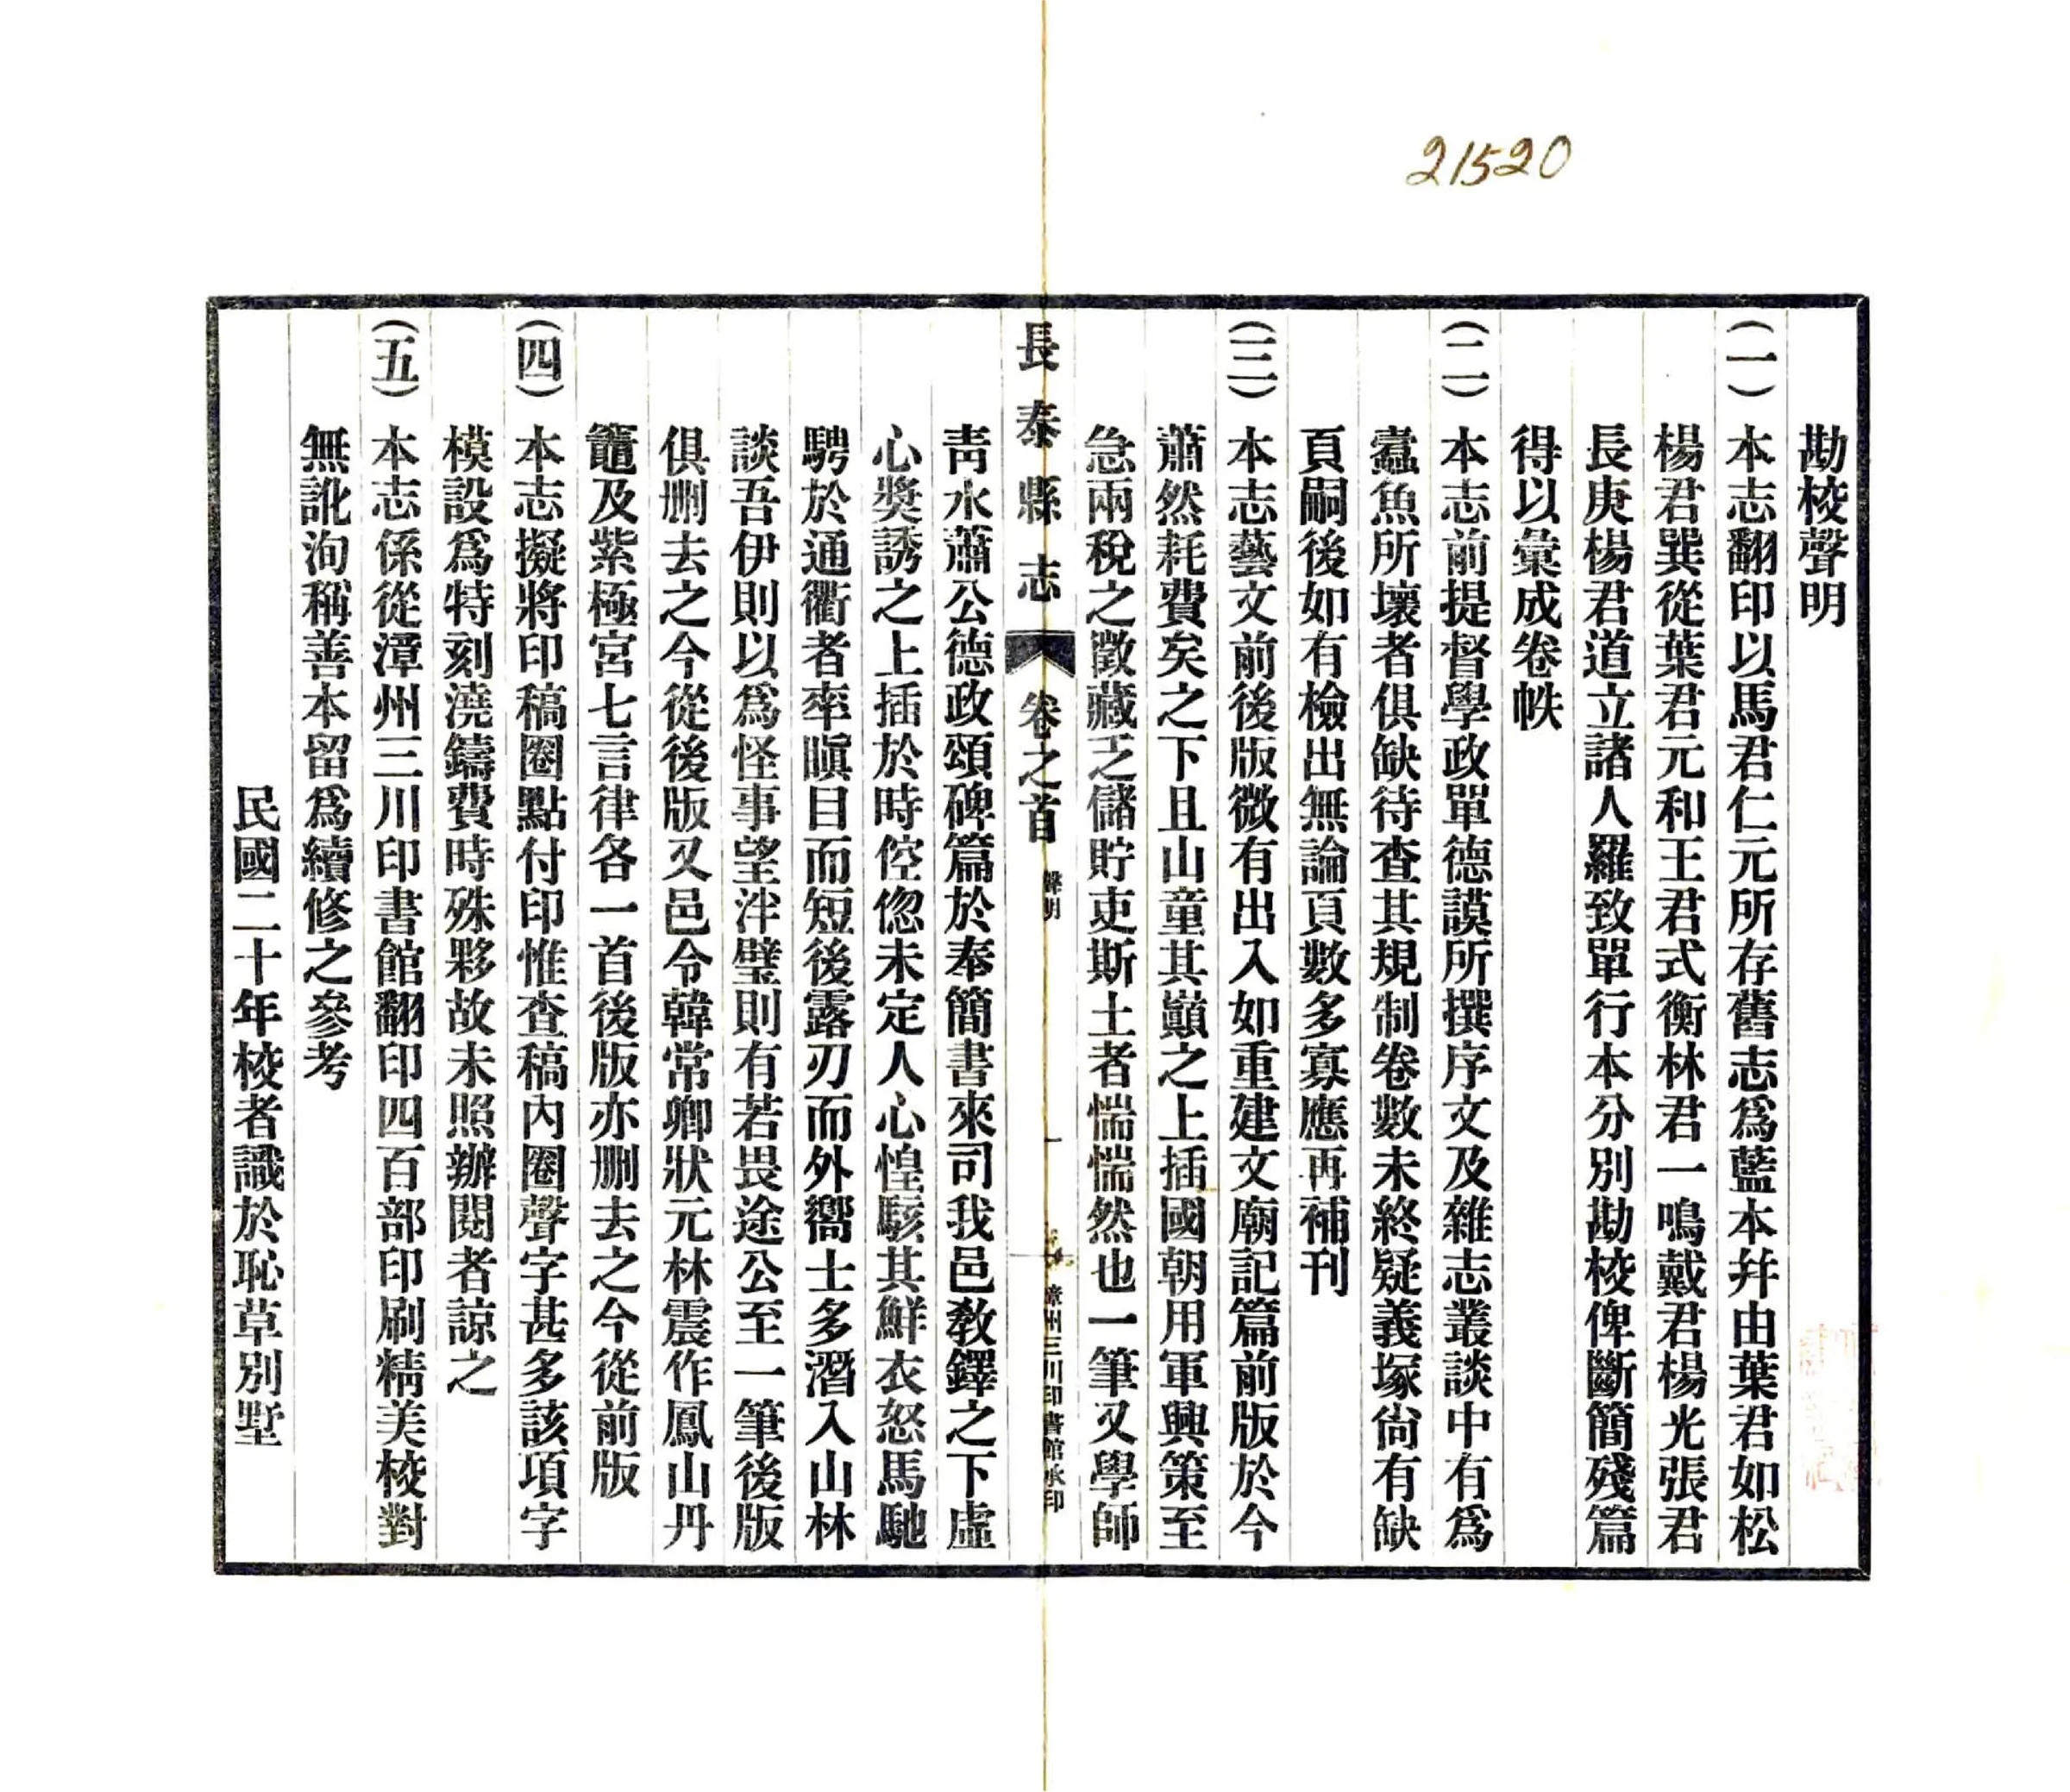 21520
勘校聲明
(一)本志翻印以馬君仁元所存舊志爲藍本幷由葉君如松
楊君巽從葉君元和王君式衡林君一鳴戴君楊光張君
長庚楊君道立諸人羅致單行本分別勘校俾斷簡殘篇
得以彙成卷帙
(二)本志前提督學政單德謨所撰序文及雜志叢談中有爲
蠧魚所壞者俱缺待查其規制卷數未終疑義塚尙有缺
頁嗣後如有檢出無論頁數多寡應再補刊
(三)本志藝文前後版微有出入如重建文廟記篇前版於今
蕭然耗費矣之下且山童其巓之上插國朝用軍興策至
急兩稅之徵藏乏儲貯吏斯土者惴惴然也一筆又學師
長泰縣志 卷之首 聲明 一 漳州三川印書館承印
靑水蕭公德政頌碑篇於奉簡書來司我邑敎鐸之下虛
心奬誘之上插於時倥偬未定人心惶駭其鮮衣怒馬馳
騁於通衢者率瞋目而短後露刃而外嚮士多潛入山林
談吾伊則以爲怪事望泮璧則有若畏途公至一筆後版
俱删去之今從後版又邑令韓常卿狀元林震作鳳山丹
竈及紫極宮七言律各一首後版亦删去之今從前版
(四)本志擬將印稿圈點付印惟查稿內圈聲字甚多該項字
模設爲特刻澆鑄費時殊夥故未照辦閱者諒之
(五)本志係從漳州三川印書館翻印四百部印刷精美校對
無訛洵稱善本留爲續修之參考
民國二十年校者識於恥草別墅